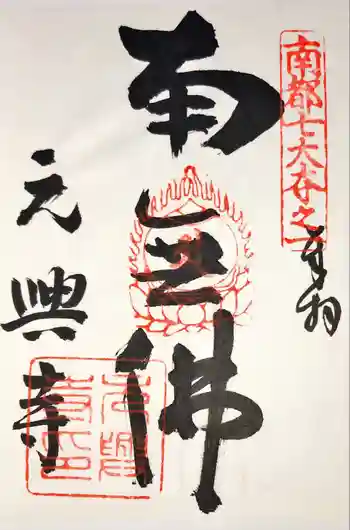 南都七大寺之一
奉拝
南無佛
元興寺
元興
寺印